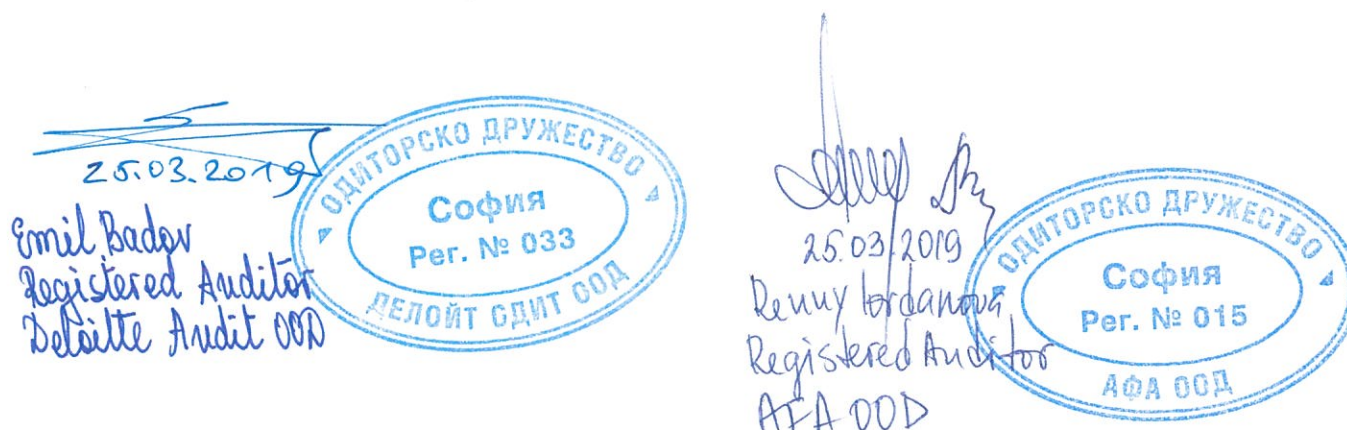 25.03.2019
Emil Badov
Registered Auditor
Deloitte Audit OOD
ОДИТОРСКО ДРУЖЕСТВО
София
Рег. № 033
ДЕЛОЙТ ОДИТ ООД
25.03.2019
Renny Iordanova
Registered Auditor
AFA OOD
ОДИТОРСКО ДРУЖЕСТВО
София
Рег. № 015
АФА ООД